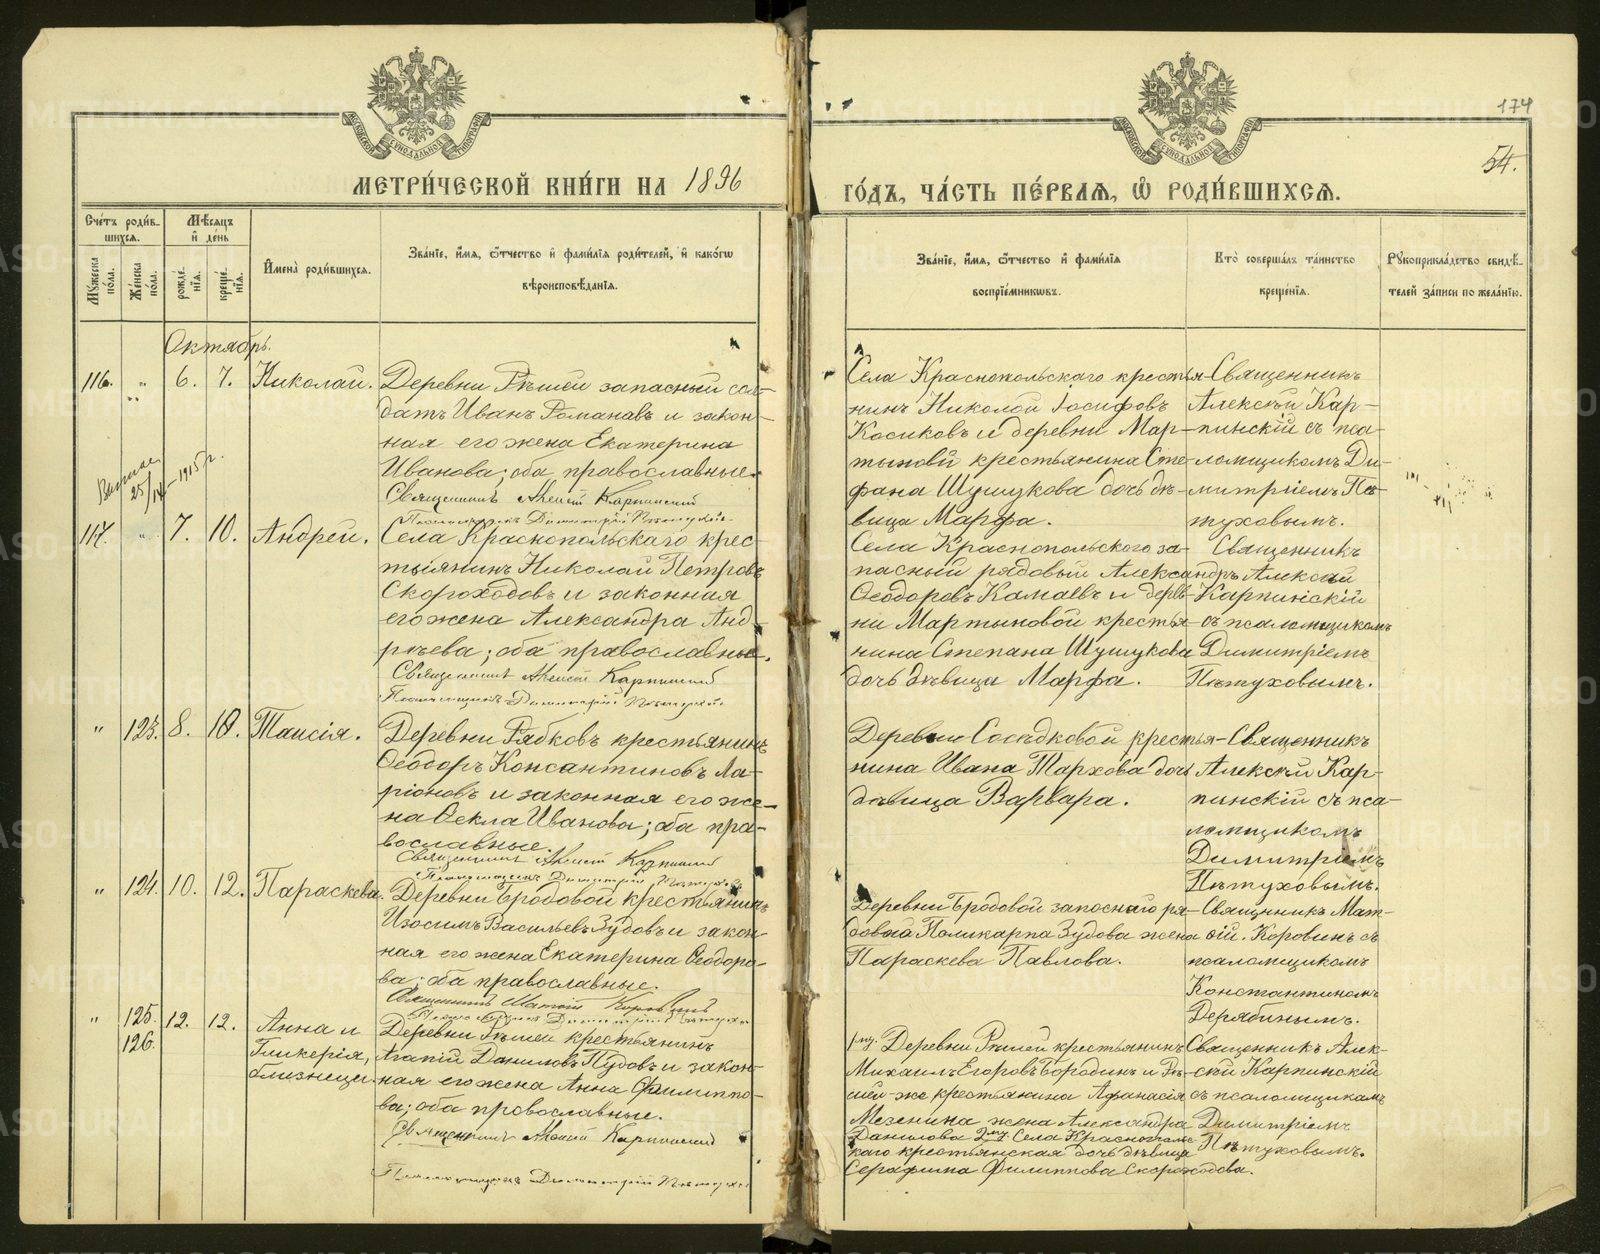 174
54.
МОСКОВСКОЙ СѴНОДАЛЬНОЙ ТИПОГРАФІИ
МОСКОВСКОЙ СѴНОДАЛЬНОЙ ТИПОГРАФІИ
МЕТРИ́ЧЕСКОЙ КНИ́ГИ НА 1896
ГО́ДЪ, ЧА́СТЬ ПЕ́РВАѦ, Ѡ РОДИ́ВШИХСѦ.
Сче́тъ роди́в-
шихсѧ.
Мꙋ́жеска по́ла.
Же́нска по́ла.
Мѣ́сѧцъ
и҆ де́нь
рожде́нїѧ.
креще́нїѧ.
И҆мена̀ роди́вшихсѧ.
Зва́нїе, и҆́мѧ, ѻ҆́тчество и҆ фами́лїѧ роди́телей, и҆ како́гѡ
вѣроисповѣ́данїѧ.
Зва́нїе, и҆́мѧ, ѻ҆́тчество и҆ фами́лїѧ
воспрїе́мникѡвъ.
Кто̀ соверша́лъ та́инство
креще́нїѧ.
Рꙋкоприкла́дство свидѣ́-
телей за́писи по жела́нїю.
Октябрь.
116. „ 6. 7. Николай.
Деревни Рѣшей запасный сол-
датъ Иванъ Романавъ и закон-
ная его жена Екатерина
Иванова; оба православные.
Священникъ Алексій Карпинскій
Псаломщикъ Димитрій Пѣтуховъ
Села Краснопольскаго крестья-
нинъ Николай Іосифовъ
Косиковъ и деревни Мар-
тыновй крестьянина Сте-
фана Шушукова дочь дѣ-
вица Марфа.
Священникъ
Алексѣй Кар-
пинскій съ пса-
ломщикомъ Ди-
митріемъ Пѣ-
туховымъ.
25/ – 1915 г.
117. „ 7. 10. Андрей.
Села Краснопольскаго крес-
тьянинъ Николай Петровъ
Скороходовъ и законная
его жена Александра Анд-
рѣева; оба православные.
Священникъ Алексій Карпинскій
Псаломщикъ Димитрій Пѣтуховъ
Села Краснопольского за-
пасный рядовый Александръ
Ѳеодоровъ Камаевъ и дерев-
ни Мартыновой крестья-
нина Степана Шушукова
дочь дѣвица Марфа.
Священникъ
Алексѣй
Карпинскій
съ псаломщикомъ
Димитріемъ
Пѣтуховымъ.
„ 123. 8. 10. Таисія.
Деревни Рябковъ крестьянинъ
Ѳеодоръ Консантиновъ Ла-
ріоновъ и законная его же-
на Ѳекла Иванова; оба пра-
вославные.
Священникъ Алексій Карпинскій
Псаломщикъ Димитрій Пѣтуховъ
Деревни Сосѣдковой крестья-
нина Ивана Тархова дочь
дѣвица Варвара.
Священникъ
Алексѣй Кар-
пинскій съ пса-
ломщикомъ
Димитріемъ
Пѣтуховымъ.
„ 124. 10. 12. Параскева.
Деревни Бродовой крестьянинъ
Изосимъ Васильевъ Зудовъ и закон-
ная его жена Екатерина Ѳеодоро-
ва; оба православные.
Священникъ Матѳій Коровинъ
Псаломщикъ Димитрій Пѣтуховъ
Деревни Бродовой запоснаго ря-
доваго Поликарпа Зудова жена
Параскева Павлова.
Священникъ Мат-
ѳій. Коровинъ съ
псаломщикомъ
Константиномъ
Дерябинымъ.
„ 125. 126. 12. 12. Анна и
Гликерія,
близнецы.
Деревни Рѣшей крестьянинъ
Агапій Даниловъ Пудовъ и закон-
ная его жена Анна Филиппо-
ва; оба провославные.
Священникъ Алексій Карпинскій
Псаломщикъ Димитрій Пѣтуховъ
1му. Деревни Рѣшей крестьянинъ
Михаилъ Егоровъ Бородинъ и Рѣ-
шей-же крестьянина Афанасія
Мезенина жена Александра
Данилова 2му Села Краснополь-
каго крестьянская дочь дѣвица
Серафима Филиппова Скороходова.
Священникъ Алек-
сѣй Карпинскій
съ псаломщикамъ
Димитріемъ
Пѣтуховымъ.